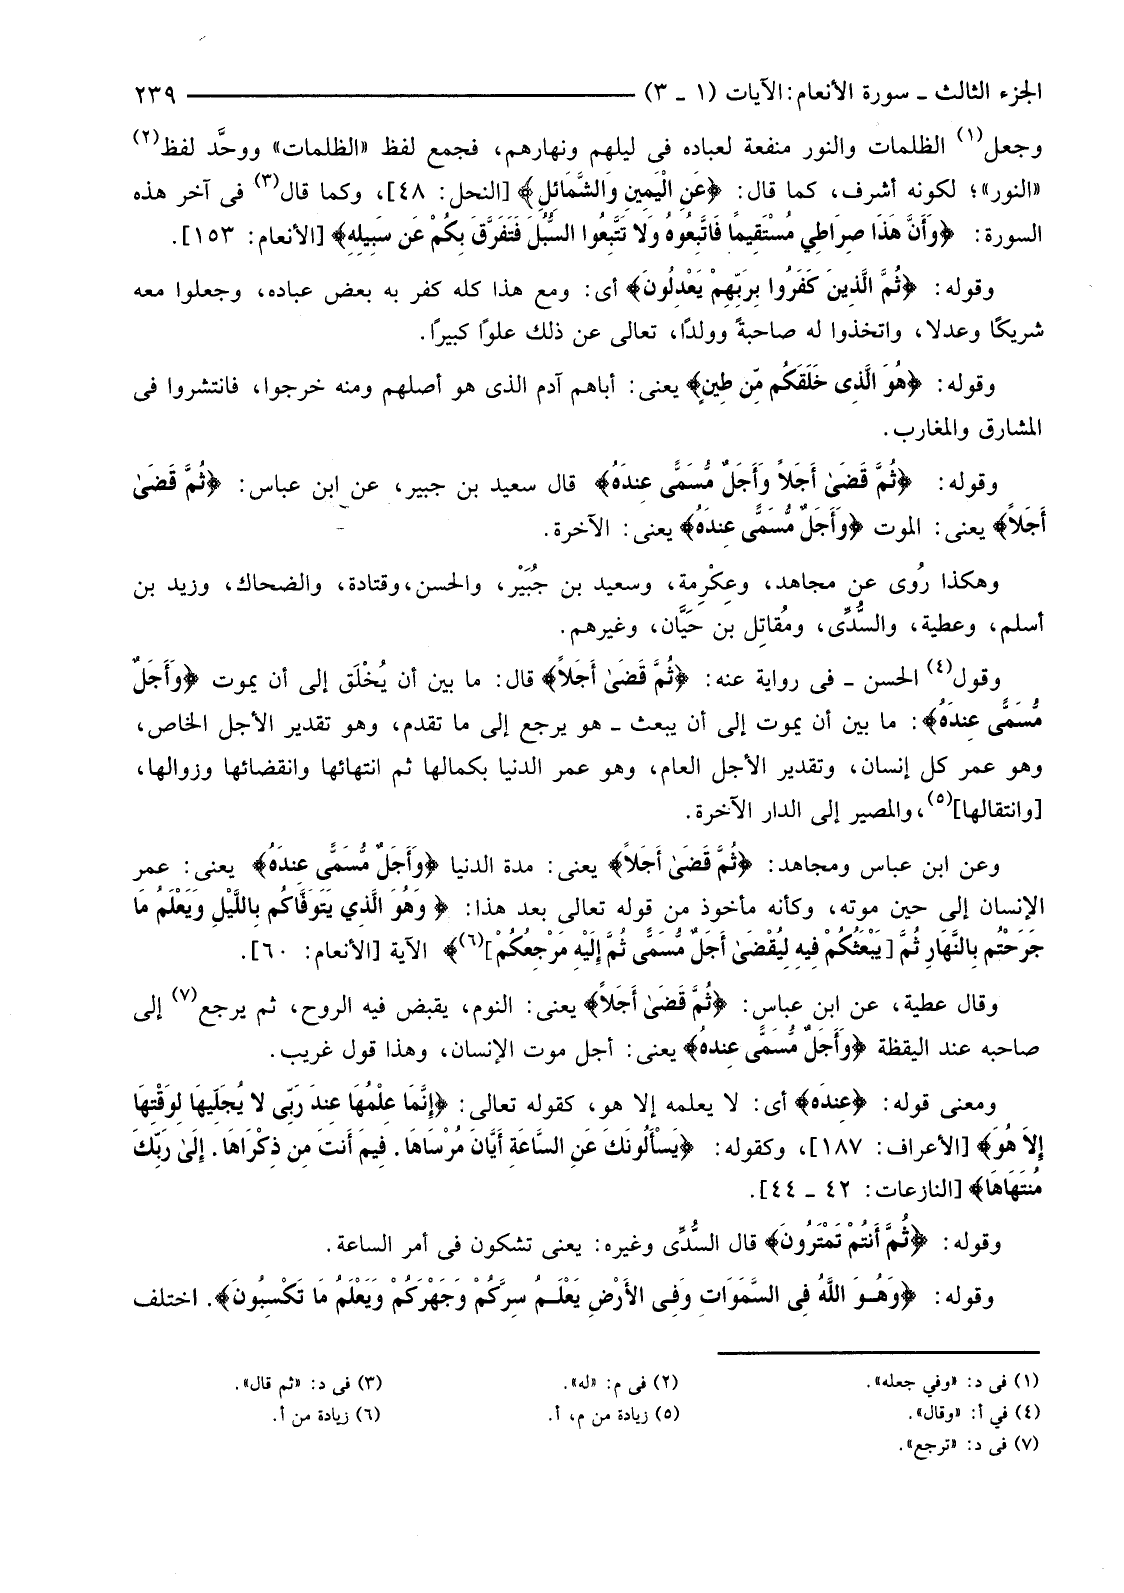 الجزء الثالث ـ سورة الأنعام: الآيات (١ ـ ٣) ٢٣٩
وجعل(١) الظلمات والنور منفعة لعباده فى ليلهم ونهارهم، فجمع لفظ «الظلمات» ووحَّد لفظ(٢)
«النور»؛ لكونه أشرف، كما قال: ﴿عَنِ الْيَمِينِ وَالشَّمَائِلِ﴾ [النحل: ٤٨]، وكما قال(٣) فى آخر هذه
السورة: ﴿وَأَنَّ هَذَا صِرَاطِي مُسْتَقِيمًا فَاتَّبِعُوهُ وَلا تَتَّبِعُوا السُّبُلَ فَتَفَرَّقَ بِكُمْ عَن سَبِيلِهِ﴾ [الأنعام: ١٥٣].
وقوله: ﴿ثُمَّ الَّذِينَ كَفَرُوا بِرَبِّهِمْ يَعْدِلُونَ﴾ أى: ومع هذا كله كفر به بعض عباده، وجعلوا معه
شريكًا وعدلا، واتخذوا له صاحبةً وولدًا، تعالى عن ذلك علوًا كبيرًا.
وقوله: ﴿هُوَ الَّذِى خَلَقَكُم مِّن طِينٍ﴾ يعنى: أباهم آدم الذى هو أصلهم ومنه خرجوا، فانتشروا فى
المشارق والمغارب.
وقوله: ﴿ثُمَّ قَضَىٰ أَجَلاً وَأَجَلٌ مُّسَمًّى عِندَهُ﴾ قال سعيد بن جبير، عن ابن عباس: ﴿ثُمَّ قَضَىٰ
أَجَلاً﴾ يعنى: الموت ﴿وَأَجَلٌ مُّسَمًّى عِندَهُ﴾ يعنى: الآخرة.
وهكذا رُوى عن مجاهد، وعِكْرِمة، وسعيد بن جُبَيْر، والحسن، وقتادة، والضحاك، وزيد بن
أسلم، وعطية، والسُّدِّى، ومُقاتِل بن حَيَّان، وغيرهم.
وقول(٤) الحسن ـ فى رواية عنه: ﴿ثُمَّ قَضَىٰ أَجَلاً﴾ قال: ما بين أن يُخْلَق إلى أن يموت ﴿وَأَجَلٌ
مُّسَمًّى عِندَهُ﴾: ما بين أن يموت إلى أن يبعث ـ هو يرجع إلى ما تقدم، وهو تقدير الأجل الخاص،
وهو عمر كل إنسان، وتقدير الأجل العام، وهو عمر الدنيا بكمالها ثم انتهائها وانقضائها وزوالها،
[وانتقالها](٥)، والمصير إلى الدار الآخرة.
وعن ابن عباس ومجاهد: ﴿ثُمَّ قَضَىٰ أَجَلاً﴾ يعنى: مدة الدنيا ﴿وَأَجَلٌ مُّسَمًّى عِندَهُ﴾ يعنى: عمر
الإنسان إلى حين موته، وكأنه مأخوذ من قوله تعالى بعد هذا: ﴿ وَهُوَ الَّذِي يَتَوَفَّاكُم بِاللَّيْلِ وَيَعْلَمُ مَا
جَرَحْتُم بِالنَّهَارِ ثُمَّ [يَبْعَثُكُمْ فِيهِ لِيُقْضَىٰ أَجَلٌ مُّسَمًّى ثُمَّ إِلَيْهِ مَرْجِعُكُمْ](٦)﴾ الآية [الأنعام: ٦٠].
وقال عطية، عن ابن عباس: ﴿ثُمَّ قَضَىٰ أَجَلاً﴾ يعنى: النوم، يقبض فيه الروح، ثم يرجع(٧) إلى
صاحبه عند اليقظة ﴿وَأَجَلٌ مُّسَمًّى عِندهُ﴾ يعنى: أجل موت الإنسان، وهذا قول غريب.
ومعنى قوله: ﴿عِندَه﴾ أى: لا يعلمه إلا هو، كقوله تعالى: ﴿إِنَّمَا عِلْمُهَا عِندَ رَبِّى لا يُجَلِّيهَا لِوَقْتِهَا
إِلاَّ هُوَ﴾ [الأعراف: ١٨٧]، وكقوله: ﴿يَسْأَلُونَكَ عَنِ السَّاعَةِ أَيَّانَ مُرْسَاهَا. فِيمَ أَنتَ مِن ذِكْرَاهَا. إِلَىٰ رَبِّكَ
مُنتَهَاهَا﴾ [النازعات: ٤٢ ـ ٤٤].
وقوله: ﴿ثُمَّ أَنتُمْ تَمْتَرُونَ﴾ قال السُّدِّى وغيره: يعنى تشكون فى أمر الساعة.
وقوله: ﴿وَهُـوَ اللَّهُ فِى السَّمَوَاتِ وَفِـى الأَرْضِ يَعْلَـمُ سِرَّكُمْ وَجَهْرَكُمْ وَيَعْلَمُ مَا تَكْسِبُونَ﴾. اختلف
(١) فى د: «وفي جعله». (٢) فى م: «له». (٣) فى د: «ثم قال».
(٤) في أ: «وقال». (٥) زيادة من م، أ. (٦) زيادة من أ.
(٧) فى د: «ترجع».